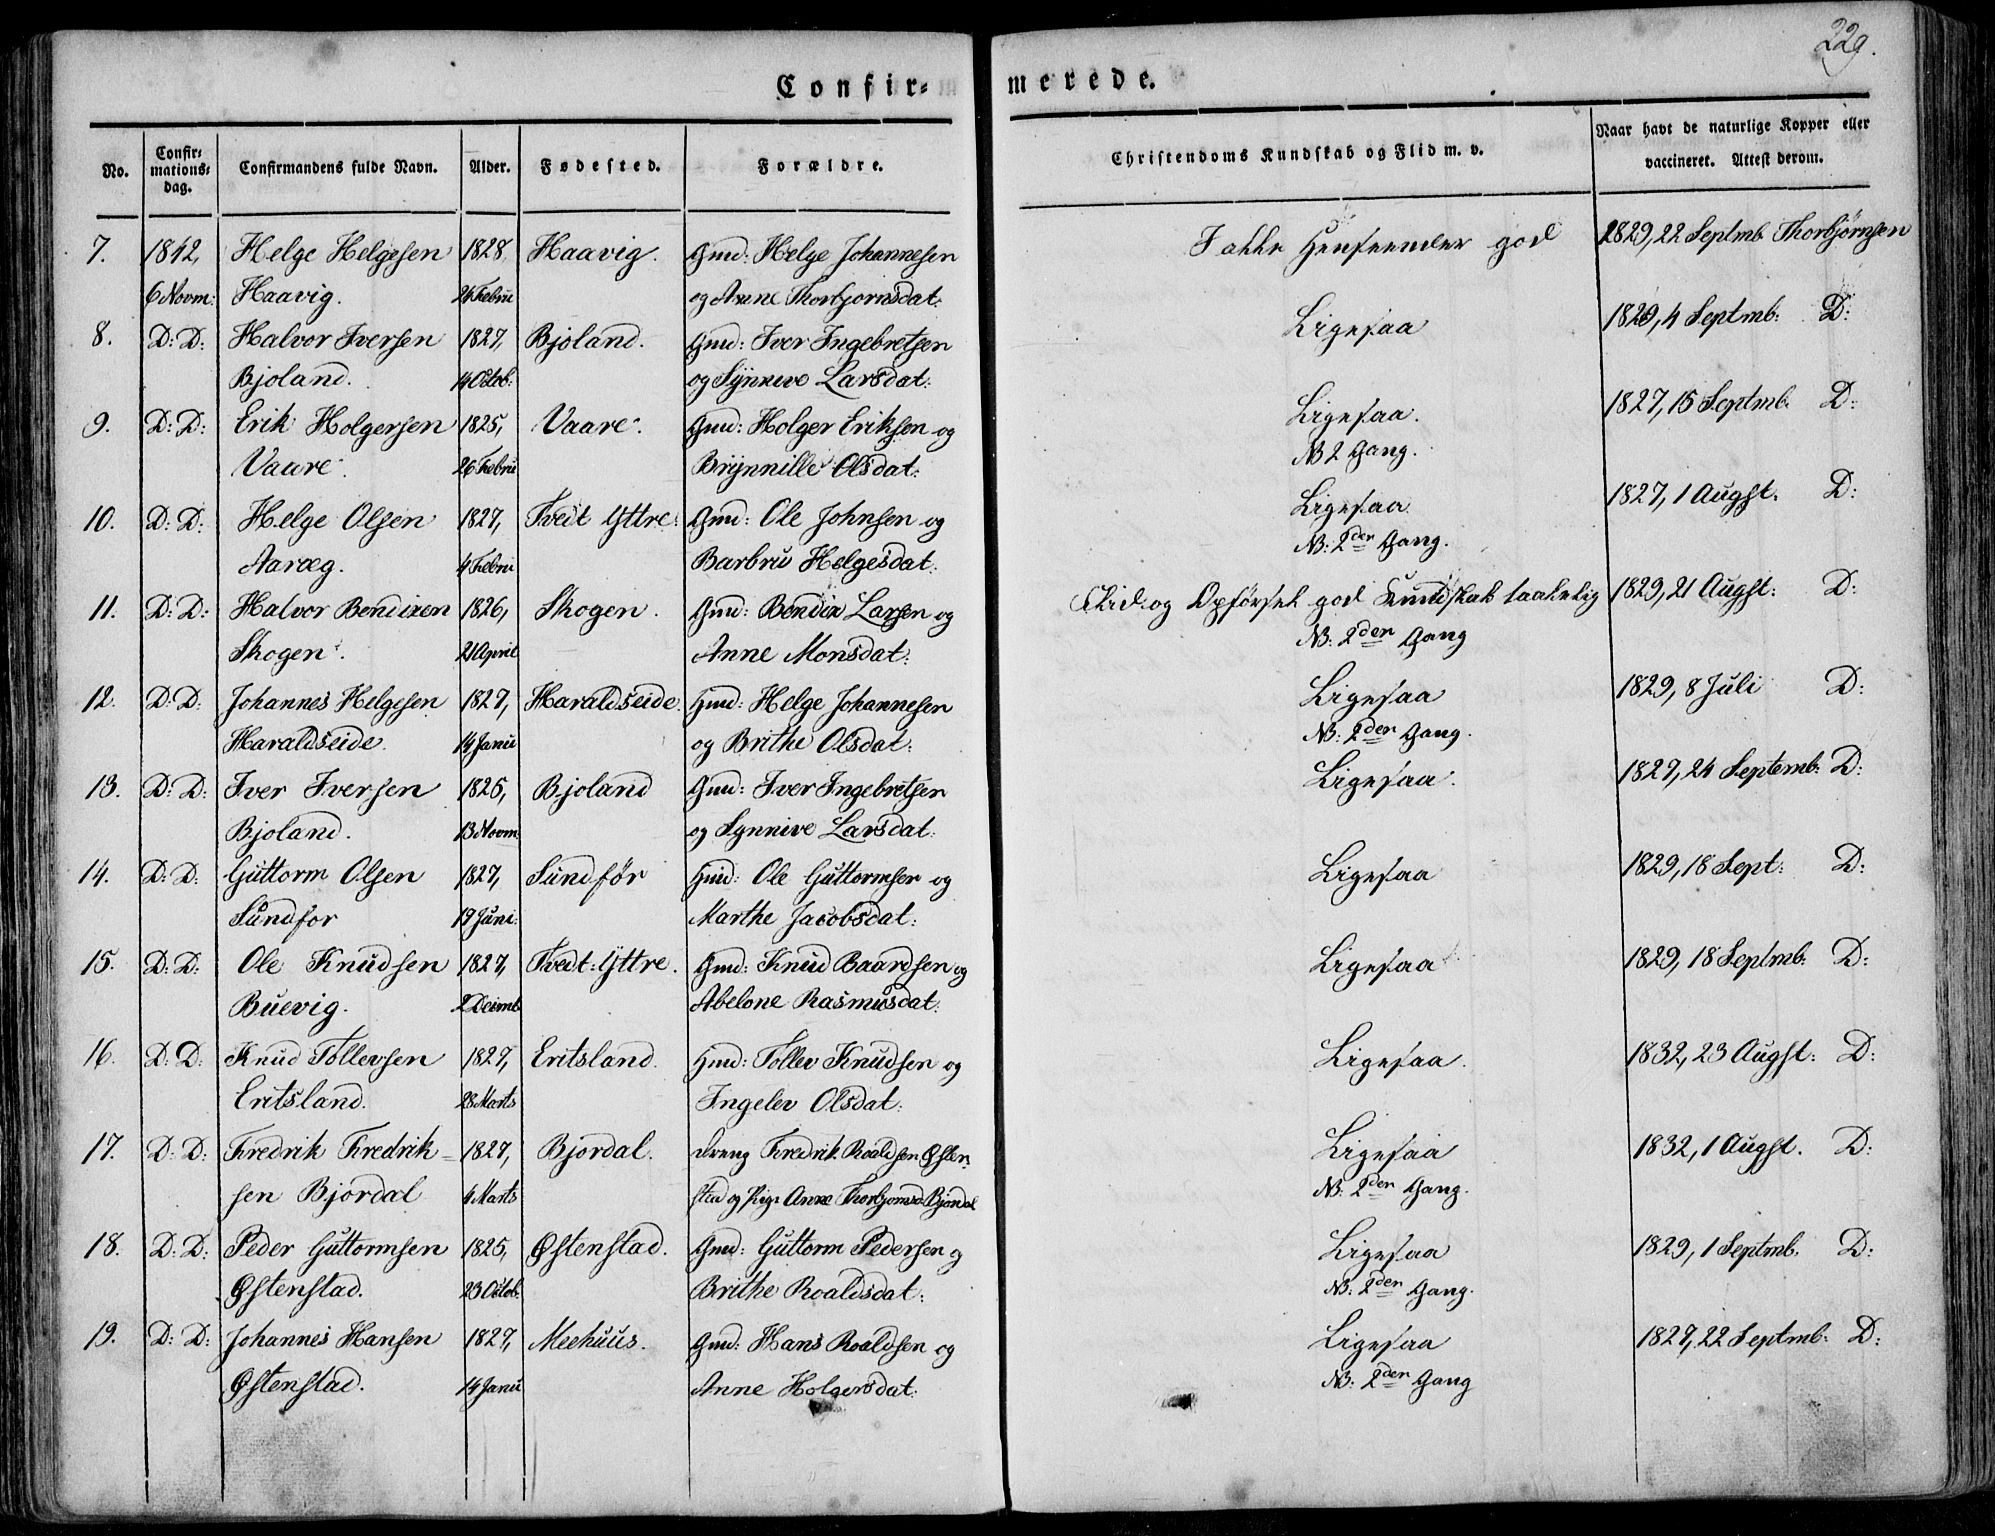 229.
Confir=
merede.
No.
Confir=
mations=
dag.
Confirmandens fulde Navn.
Alder.
Fødested.
Forældre.
Christendoms Kundskab og Flid m. v.
Naar havt de naturlige Kopper eller
vaccineret. Attest derom.
7. 1842, Helge Helgesen 1828, Haavig. Gmd: Helge Johannesen god 1829, 22 Septmb Thorbjørnsen
6 Novm: Haavig. 24 Febru og Anne Thorbjornsdat:
8. D: D: Halvor Iversen 1827, Bjoland. Gmd: Iver Ingebretsen Ligesaa 1829, 4 Septmb: D:
Bjoland. 14 Octob: og Synneve Larsdat:
9. D: D: Erik Holgersen 1825, Vaare. Gmd: Holger Eriksen og Ligesaa. 1827, 15 Septmb. D:
Vaare. 26 Febru Brynnille Olsdat: NB 2 Gang.
10. D: D: Helge Olsen 1827, Tvedt Yttre: Gmd: Ole Johnsen og Ligesaa 1827, 1 Augst. D:
Aaraeg. 4 Febru Barbru Helgesdat: NB: 2den Gang.
11. D: D: Halvor Bendixen 1826, Skogen. Gmd: Bendix Larsen og Flid og Opførsel god Kundskab taalelig 1829, 21 Augst: D:
Skogen. 21 April Anne Monsdat: NB: 2den Gang
12. D: D: Johannes Helgesen 1827, Haraldseide. Gmd: Helge Johannesen Ligesaa 1829, 8 Juli D:
Haraldseide. 14 Janu og Brithe Olsdat: NB: 2den Gang.
13. D: D: Iver Iversen 1825, Bjoland Gmd: Iver Ingebretsen Ligesaa. 1827, 24 Septemb: D:
Bjoland. 13 Novm og Synnive Larsdat:
14. D: D: Guttorm Olsen 1827, Sundfør Gmd: Ole Guttormsen og Ligesaa 1829, 18 Sept: D:
Sundfor 19 Juni: Marthe Jacobsdat:
15. D: D: Ole Knudsen 1827, Tvedt: Yttre. Gmd: Knud Baardsen og Ligesaa 1829, 18 Septmb: D:
Buevig. Abelone Rasmusdat:
16. D: D: Knud Tollevsen 1827, Eritsland. Gmd: Tollev Knudsen og Ligesaa. 1832, 23 Augst: D:
Eritsland. 28 Marts Ingelev Olsdat:
17. D: D: Fredrik Fredrik= 1827, Bjordal. Dreng Fredrik Roaldsen Østen= Ligesaa 1832, 1 Augst. D:
sen Bjordal 4 Marts stad og Pige Anne Thorbjornsd: Bjordal NB: 2den Gang.
18. D: D: Peder Guttormsen 1825, Østenstad. Gmd: Guttorm Pedersen og Ligesaa 1829, 1 Septmb. D:
Østenstad. 23 Octob: Brithe Roaldsdat: NB: 2den Gang.
19. D: D: Johannes Hansen 1827, Meehuus. Gmd: Hans Roaldsen og Ligesaa 1827, 22 Septmb: D:
Østenstad. 14 Janu Anne Holgersdat: NB: 2den Gang